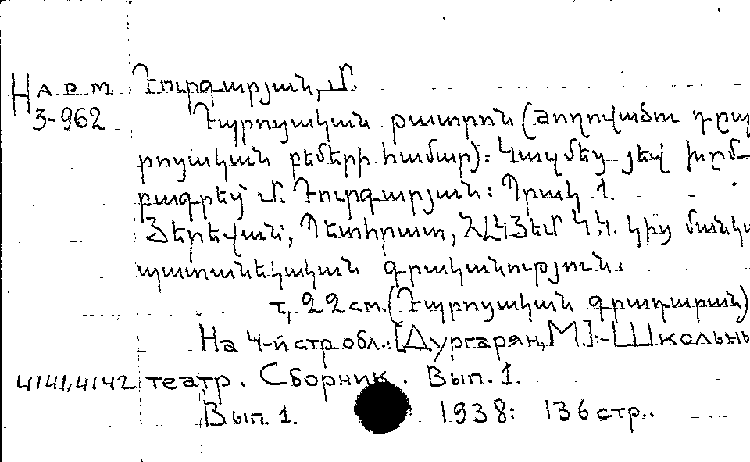 Н арм Դուրգարյան, Մ.
3-962 Դպրոցական թատրոն (Ժողովածու դպ
րոցական բեմերի համար)։ Կազմեց յեվ խըմ-
բագրեց Մ. Դուրգարյան։ Պրակ 1.
Յերեվան, Պետհրատ, ՀԼԿՅԵՄ ԿԿ. կից մանկա
պատանեկական գրականություն։
т, 22 см. (Դպրոցական գրադարան)
На 4-й стр обл.: [Дургарян, М.]:-Школьн
4141,4142 театр. Сборник. Вып. 1.
Вып. 1. 1938: 136 стр..